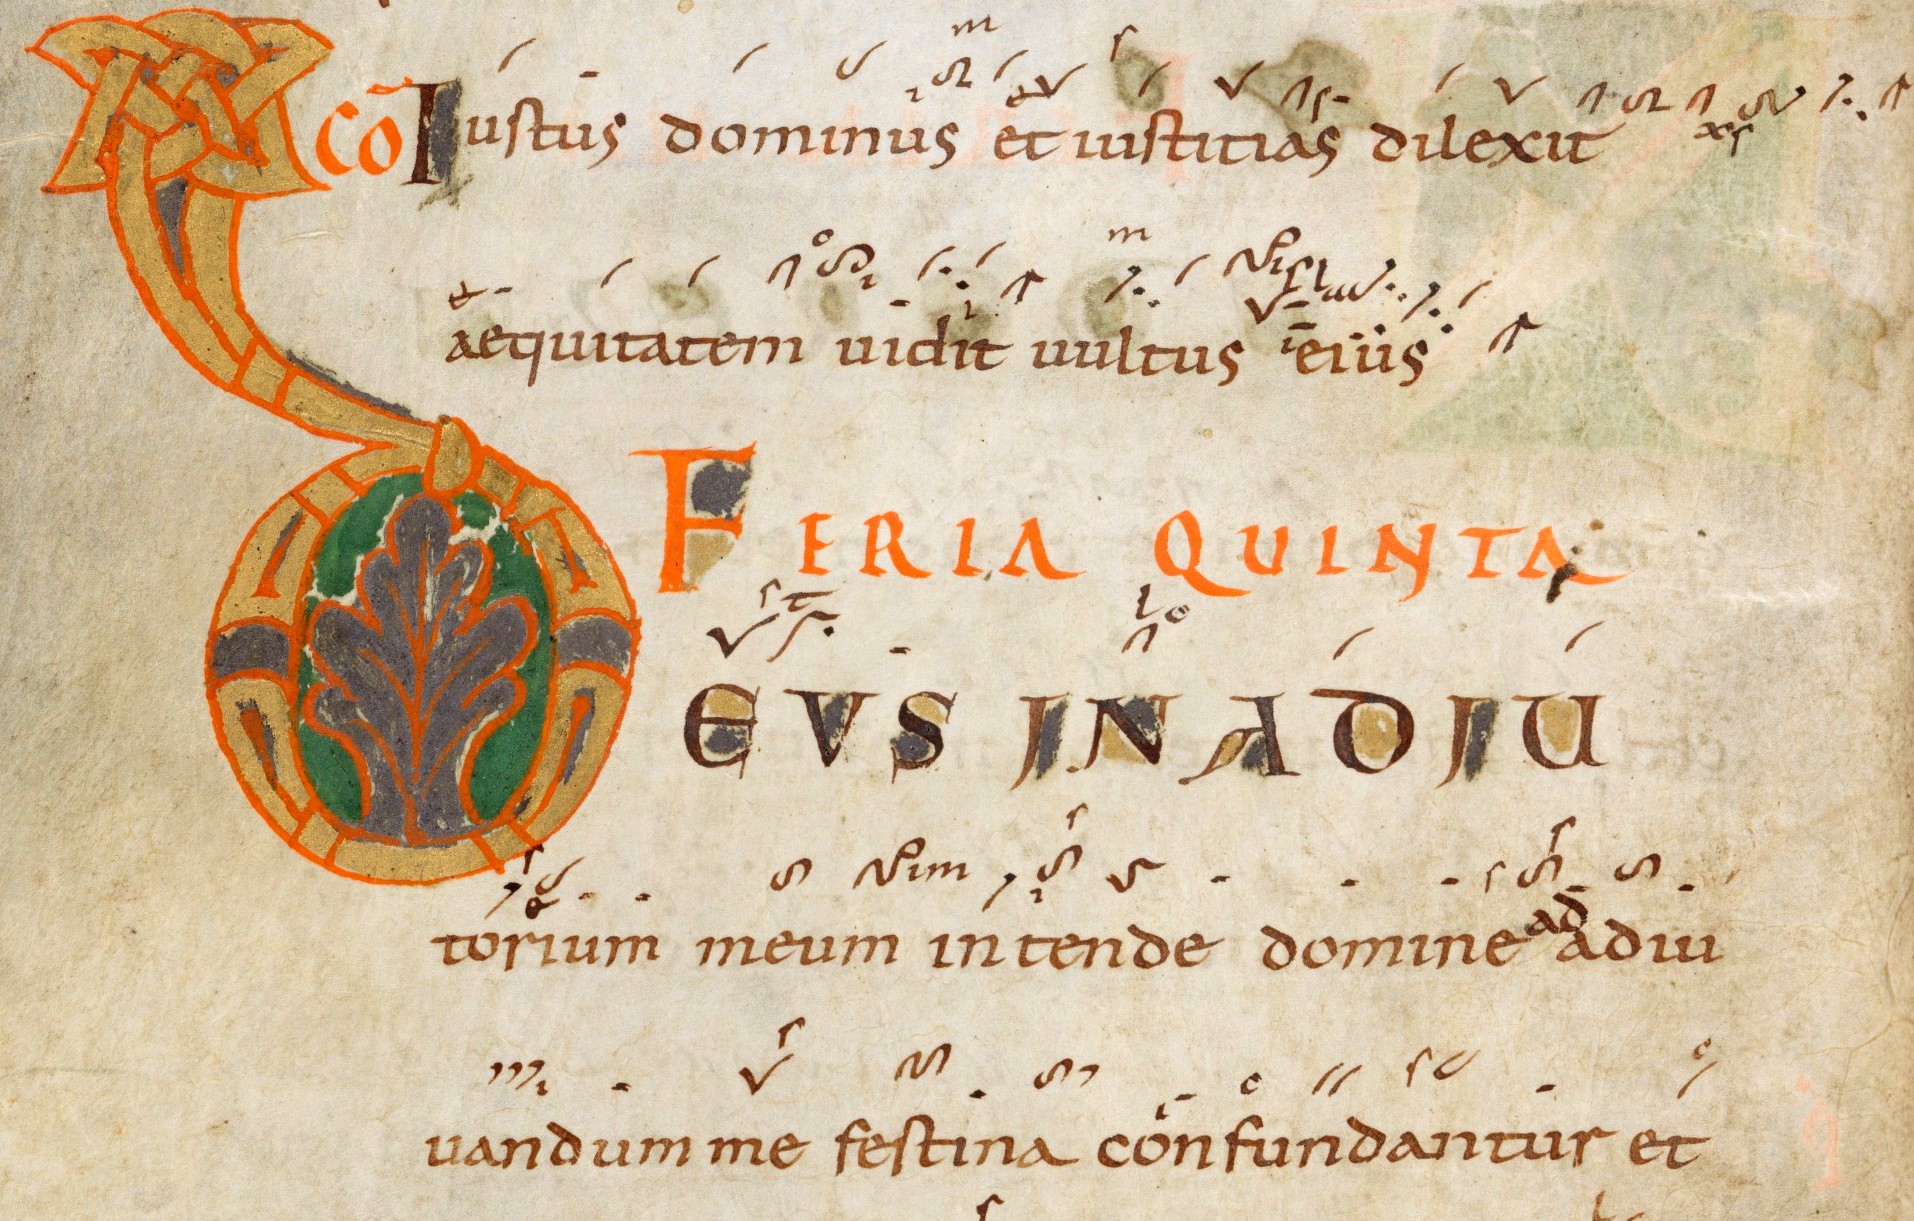 Cō Iustus dominus et iustitias dilexit
aequitatem uidit uultus eius
FERIA QUINTA
DEVS IN ADIU
torium meum intende domine ad adiu
uandum me festina confundantur et